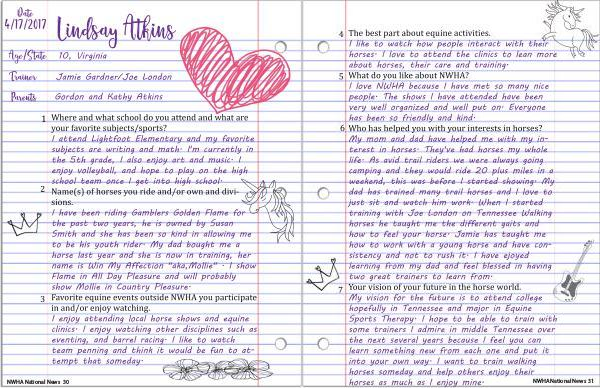 Date
4/17/2017
Lindsay Atkins
Age/State 10, Virginia
Trainer Jamie Gardner/Joe London
Parents Gordon and Kathy Atkins
1 Where and what school do you attend and what are
your favorite subjects/sports?
I attend Lightfoot Elementary and my favorite
subjects are writing and math. I'm currently in
the 5th grade, I also enjoy art and music. I
enjoy volleyball, and hope to play on the high
school team once I get into high school.
2 Name(s) of horses you ride and/or own and divi-
sions.
I have been riding Gamblers Golden Flame for
the past two years, he is owned by Susan
Smith and she has been so kind in allowing me
to be his youth rider. My dad bought me a
horse last year and she is now in training, her
name is Win My Affection "aka,Mollie" . I show
Flame in All Day Pleasure and will probably
show Mollie in Country Pleasure.
3 Favorite equine events outside NWHA you participate
in and/or enjoy watching.
I enjoy attending local horse shows and equine
clinics. I enjoy watching other disciplines such as
eventing, and barrel racing. I like to watch
team penning and think it would be fun to at-
tempt that someday.
NWHA National News 30
4 The best part about equine activities.
I like to watch how people interact with their
horses. I love to attend the clinics to lean more
about horses, their care and training.
5 What do you like about NWHA?
I love NWHA because I have met so many nice
people. The shows I have attended have been
very well organized and well put on. Everyone
has been so friendly and kind.
6 Who has helped you with your interests in horses?
My mom and dad have helped me with my in-
terest in horses. They've had horses my whole
life. As avid trail riders we were always going
camping and they would ride 20 plus miles in a
weekend, this was before I started showing. My
dad has trained many trail horses and I love to
just sit and watch him work. When I started
training with Joe London on Tennessee Walking
horses he taught me the different gaits and
how to feel your horse. Jamie has taught me
how to work with a young horse and have con-
sistency and not to rush it. I have ejoyed
learning from my dad and feel blessed in having
two great trainers to learn from.
7 Your vision of your future in the horse world.
My vision for the future is to attend college
hopefully in Tennessee and major in Equine
Sports Therapy. I hope to be able to train with
some trainers I admire in middle Tennessee over
the next several years because I feel you can
learn something new from each one and put it
into your own way. I want to train walking
horses someday and help others enjoy their
horses as much as I enjoy mine.
NWHA National News 31